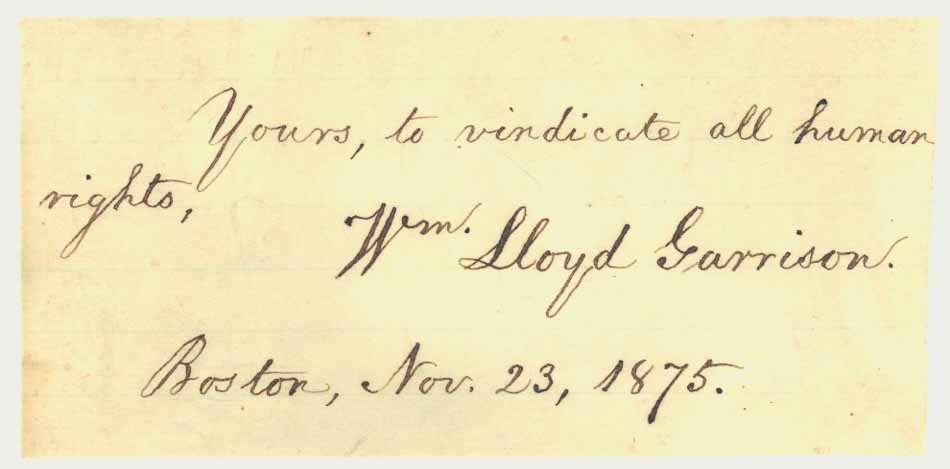 Yours, to vindicate all human
rights,
Wm. Lloyd Garrison.
Boston, Nov. 23, 1875.